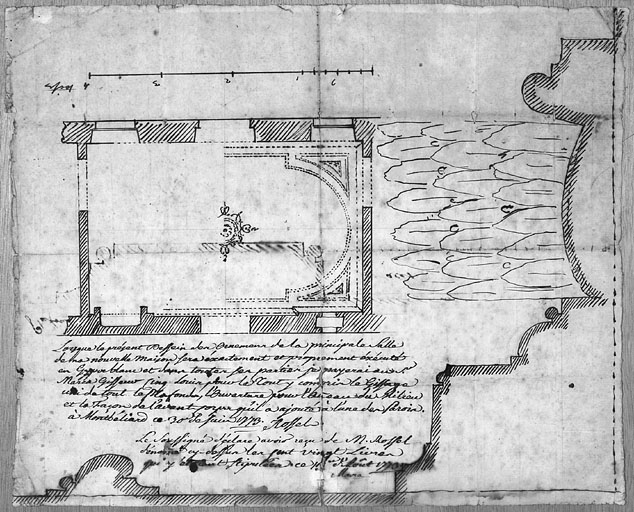 Lorsque le présent Dessein des Ornemens de la principale Salle
de ma nouvelle maison sera exactement et proprement éxécuté
en Gypse blanc et dans toutes ses parties je payerai au Sr
Marca Gisseur Cinq Louis pour le Tout y compris le Gissage
uni de tout le Plafond, l'Ouverture pour l'anneau du Milieu
et la façon de l'avant corps qu'il a ajouté à l'une des Parois.
à Montbéliard ce 30 de Juin 1773. Rossel
Le Soussigné déclare avoir reçu de M. Rossel
dénommé cy dessus les cent vingt Livres
qui y étoient stipulées ce d'Août 1773
Marca